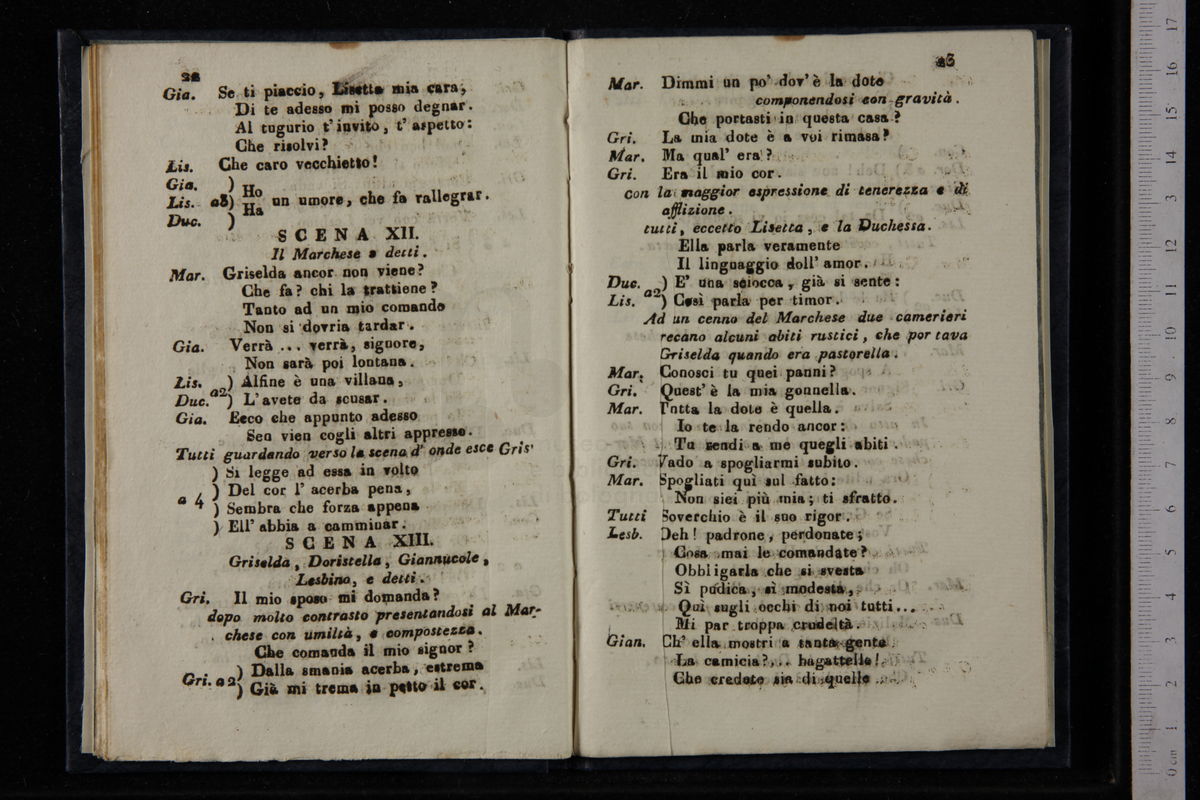 22
Gia. Se ti piaccio, Lisetta mia cara,
Di te adesso mi posso degnar.
Al tugurio t'invito, t'aspetto:
Che risolvi?
Lis. Che caro vecchietto!
Gia. ) Ho
Lis. a3) un umore, che fa rallegrar.
Duc. ) Ha
SCENA XII.
Il Marchese e detti.
Mar. Griselda ancor non viene?
Che fa? chi la trattiene?
Tanto ad un mio comando
Non si dovria tardar.
Gia. Verrà ... verrà, signore,
Non sarà poi lontana.
Lis. ) Alfine è una villana,
Duc. a2) L'avete da scusar.
Gia. Ecco che appunto adesso
Sen vien cogli altri appresso.
Tutti guardando verso la scena d'onde esce Gris'
) Si legge ad essa in volto
a 4 ) Del cor l'acerba pena,
) Sembra che forza appena
) Ell'abbia a camminar.
SCENA XIII.
Griselda, Doristella, Giannucole,
Lesbino, e detti.
Gri. Il mio sposo mi domanda?
dopo molto contrasto presentandosi al Mar-
chese con umiltà, e compostezza.
Che comanda il mio signor?
Gri. a2) Dalla smania acerba, estrema
) Già mi trema in petto il cor.
23
Mar. Dimmi un po' dov'è la dote
componendosi con gravità.
Che portasti in questa casa?
Gri. La mia dote è a voi rimasa?
Mar. Ma qual' era?
Gri. Era il mio cor.
con la maggior espressione di tenerezza e di
afflizione.
tutti, eccetto Lisetta, e la Duchessa.
Ella parla veramente
Il linguaggio doll'amor.
Duc. ) E' una sciocca, già si sente:
Lis. a2) Così parla per timor.
Ad un cenno del Marchese due camerieri
recano alcuni abiti rustici, che portava
Griselda quando era pastorella.
Mar. Conosci tu quei panni?
Gri. Quest'è la mia gonnella.
Mar. Tutta la dote è quella.
Io te la rendo ancor:
Tu rendi a me quegli abiti.
Gri. Vado a spogliarmi subito.
Mar. Spogliati quì sul fatto:
Non siei più mia; ti sfratto.
Tutti Soverchio è il suo rigor.
Lesb. Deh! padrone, perdonate;
Cosa mai le comandate?
Obbligarla che si svesta
Sì pudica, sì modesta,
Qui sugli occhi di noi tutti...
Mi par troppa crudeltà.
Gian. Ch'ella mostri a tanta gente
La camicia?... bagattelle!
Che credete sia di quelle